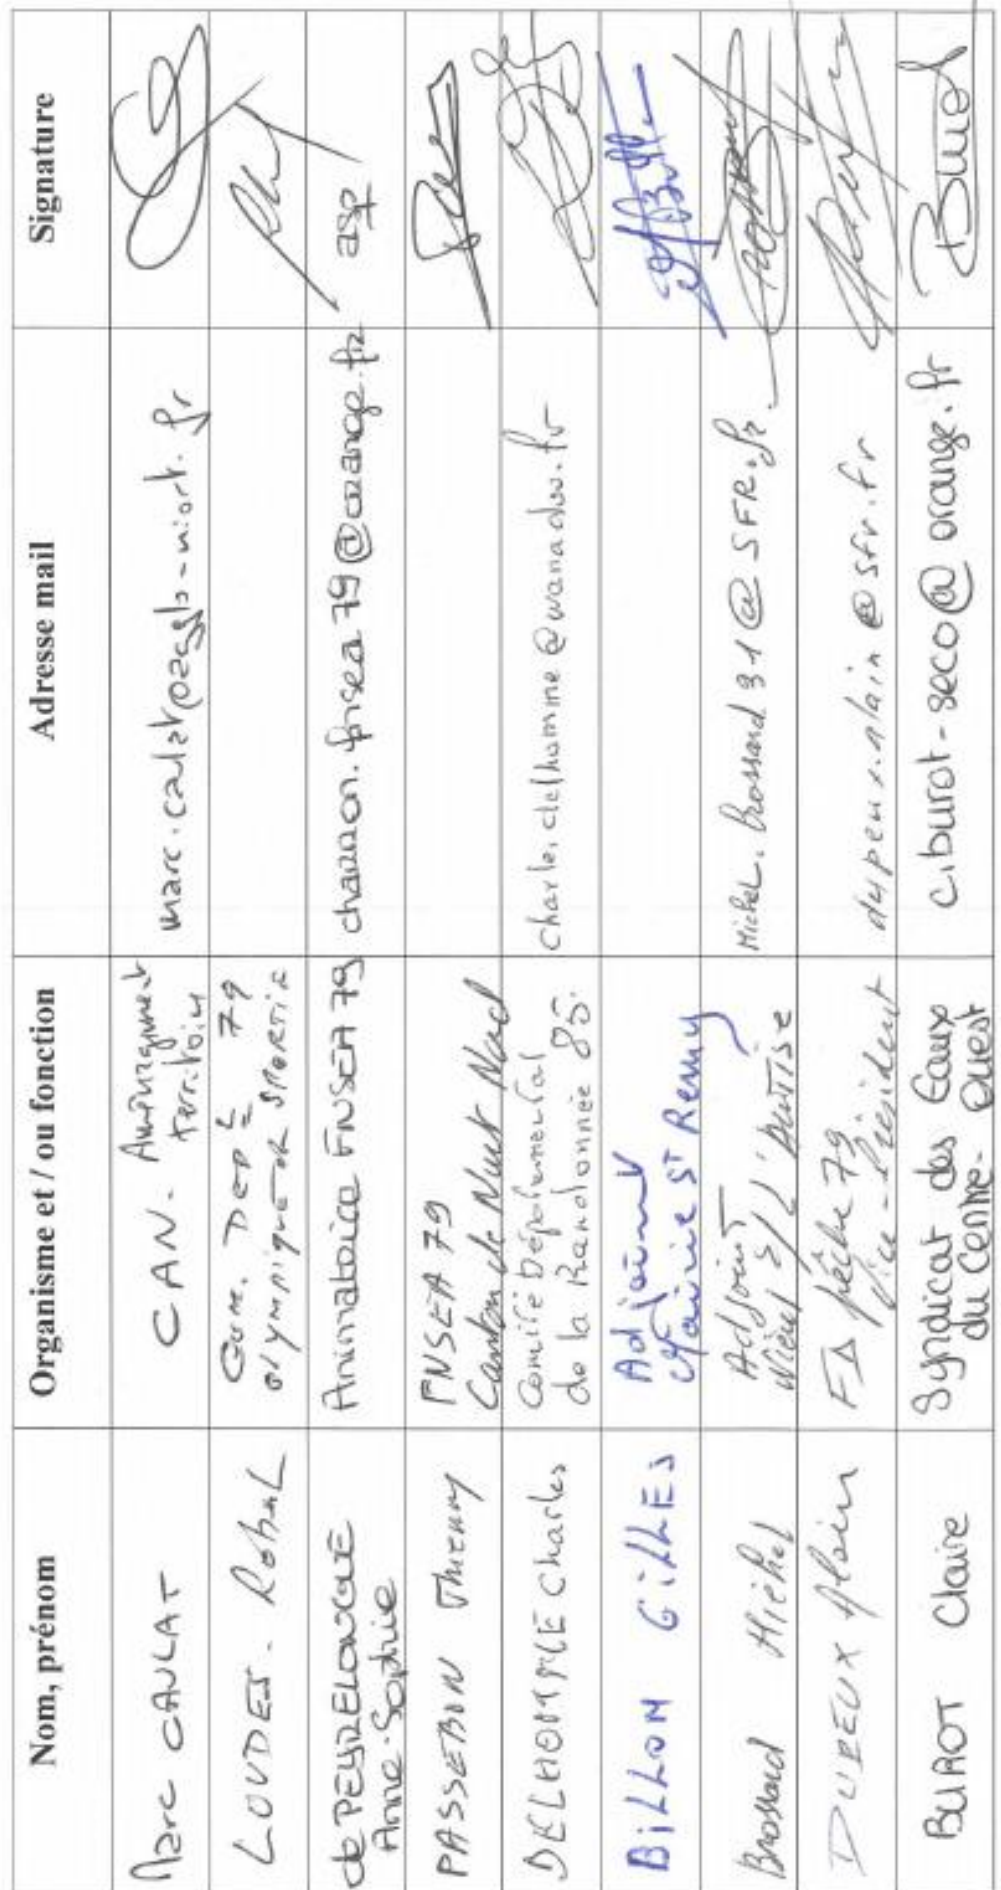 Nom, prénom
Organisme et / ou fonction
Adresse mail
Signature
Marc CAULAT
CAN - Aménagement
territoire
marc.caulat@agglo-niort.fr
LOUDES - Robert
Com. Dep L 79
olympique et sportif
de PEYRELONGUE
Anne-Sophie
Animatrice FNSEA 79
charron.fnsea79@orange.fr
asp
PASSEBON Thierry
FNSEA 79
Canton de Niort Nord
DELHOMME Charles
Comité Départemental
de la Randonnée 85.
charles.delhomme@wanadoo.fr
BiLLON GiLLES
Adjoint
Mairie St Remy
Brossard Michel
Adjoint
Nieul s/ L'AUTISE
Michel.Brossard31@SFR.fr
DUPEUX Alain
FD pêche 79
Vice-Président
dupeux.alain@sfr.fr
BUROT Claire
Syndicat des Eaux
du Centre-Ouest
c.burot-seco@orange.fr
Burot